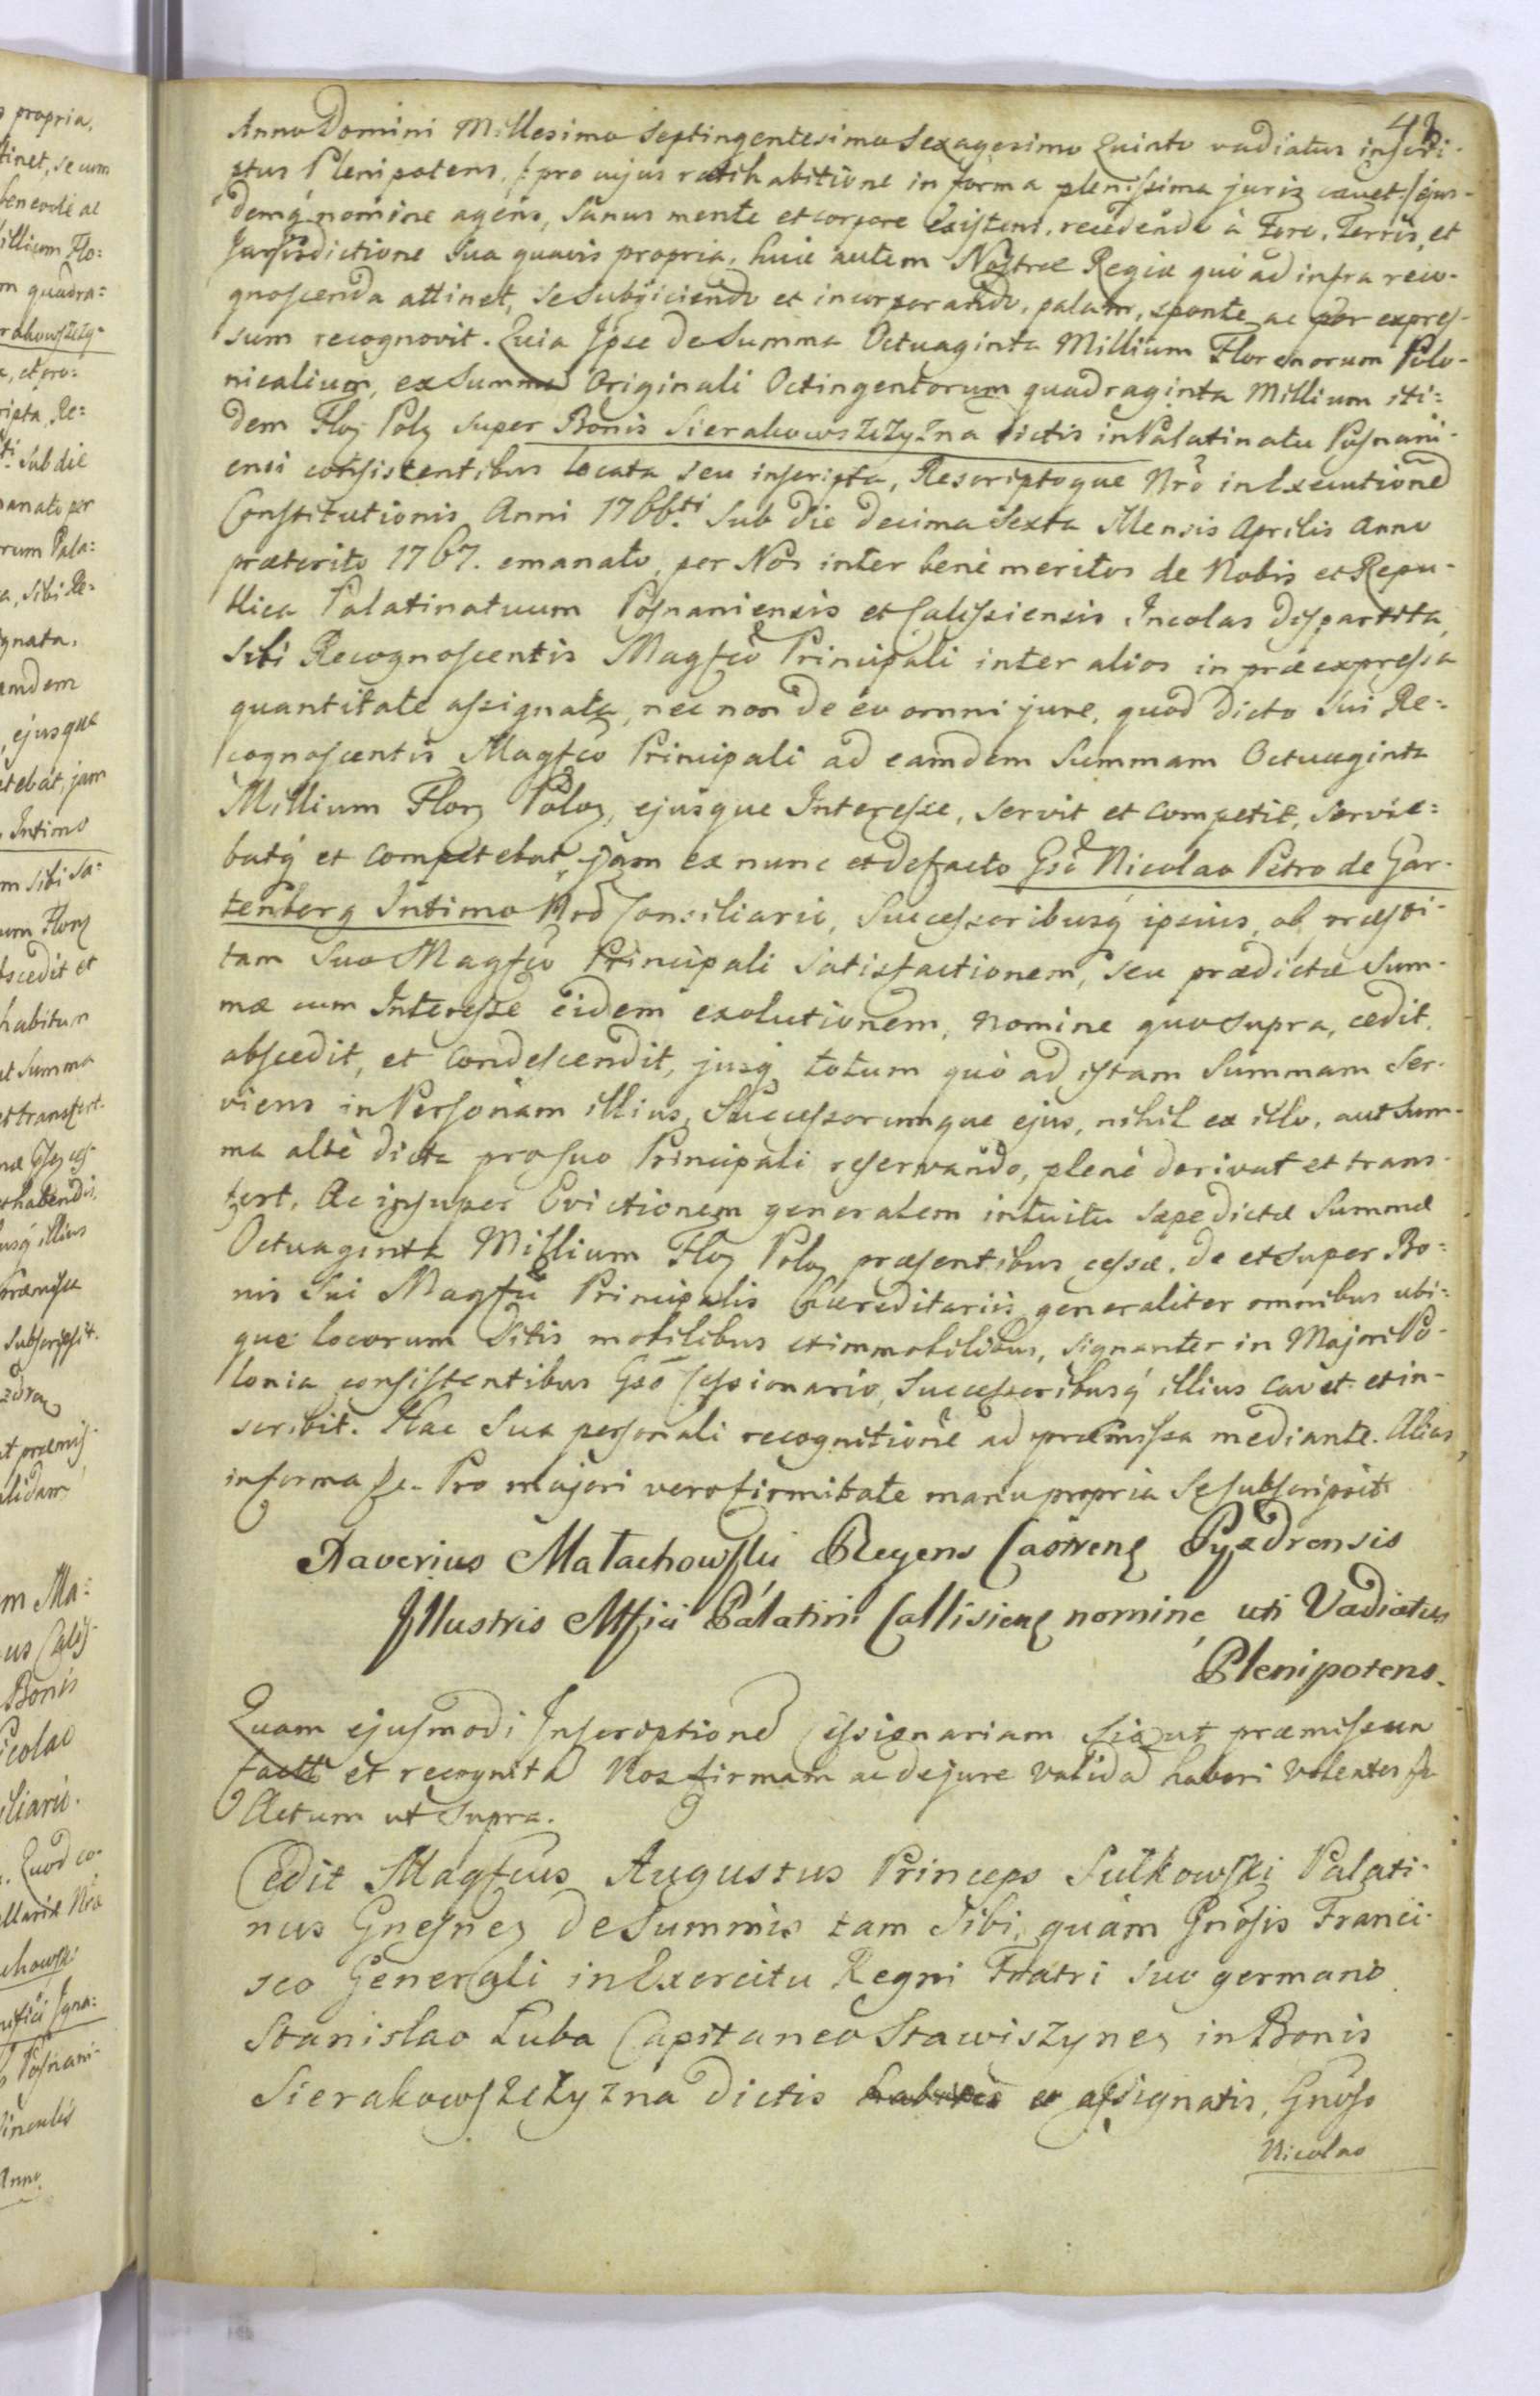 42
Anno Domini Millesimo Septingentesimo Sexagesimo Quinto vadiatus inscri-
ptus Plenipotens, (: pro cujus ratihabitione in forma plenissima juris cavet :) ejus-
demq́ nomine agens, Sanus mente et corpore existens, recedendo à Foro, Terris, et
Jurisdictione Sua quavis propria, huic autem Nostræ Regiæ quò ad infra reco-
gnoscenda attinet, se subÿciendo et incorporando, palam, sponte ac per expres-
sum recognovit. Quia Ipse de Summa Octuaginta Millium Florenorum Polo-
nicalium, ex Summa Originali Octingentorum quadraginta Millium iti-
dem Flor Polz super Bonis Sierakowszczyzna dictis in Palatinatu Posnani-
ensi consistentibus locata seu inscripta, Rescriptoque Nrõ in Executionẽ
Constitutionis Anni 1766ti Sub die decima Sexta Mensis Aprilis Anno
præterito 1767. emanato, per Nos inter benè meritos de Nobis et Repu-
blica Palatinatuum Posnaniensis et Calissiensis Incolas dispartita,
Sibi Recognoscentis Magfco Principali inter alios in præexpressa
quantitate assignata, nec non de eo omni jure, quod dicto Sui Re-
cognoscentis Magfco Principali ad eamdem Summam Octuaginta
Millium Florz Poloz, ejusque Interesse, servit et competit, servie-
batq́ et competebat, jam ex nunc et de facto Gsõ Nicolao Petro de Gar-
tenberg Intimo Nrõ Consiliario, Successoribusq́ ipsius, ob præsti-
tam Suo Magfco Principali Satisfactionem, seu prædictæ Sum-
mæ cum Interesse eidem exolutionem, nomine quo supra, cedit,
abscedit, et condescendit, jusq́ totum quò ad istam Summam Ser-
viens in Personam illius, Successorumque ejus, nihil ex illo, aut Sum-
ma altè dicta pro suo Principali reservando, plenè derivat et trans-
fert. Ac insuper Evictionem generalem intuitu sæpedictæ Summæ
Octuaginta Millium Floz Poloz præsentibus cessæ, de et super Bo-
nis Sui Magfci Principalis hæreditariis generaliter omnibus ubi-
que locorum Sitis mobilibus et immobilibus, signanter in Majori Po-
lonia consistentibus Gsõ Cessionario, Successoribusq́ illius cavet et in-
scribit. Hac Sua personali recognitione ad præmissa mediante. Alias
in forma &c. Pro majori vero firmitate manu propria Se subscripsit
Xaverius Małachowski Regens Castrens Pyzdrensis
Illustris Mfici Palatini Callisiens nomine uti Vadiatus
Plenipotens.
Quam ejusmodi Inscriptionẽ Cessionariam sic ut præmissum
factã et recognitã Nos firmam ac de jure validã haberi volentes &c
Actum ut Supra.
Cedit Magfcus Augustus Princeps Sułkowski Palati-
nus Gnesnez de Summis tam Sibi, quàm Gnõsis Franci-
sco Generali in Exercitu Regni Fratri suo germano
Stanislao Łuba Capitaneo Stawiszynez in Bonis
Sierakowszczyzna dictis assignatis, Gnõso
Nicolao